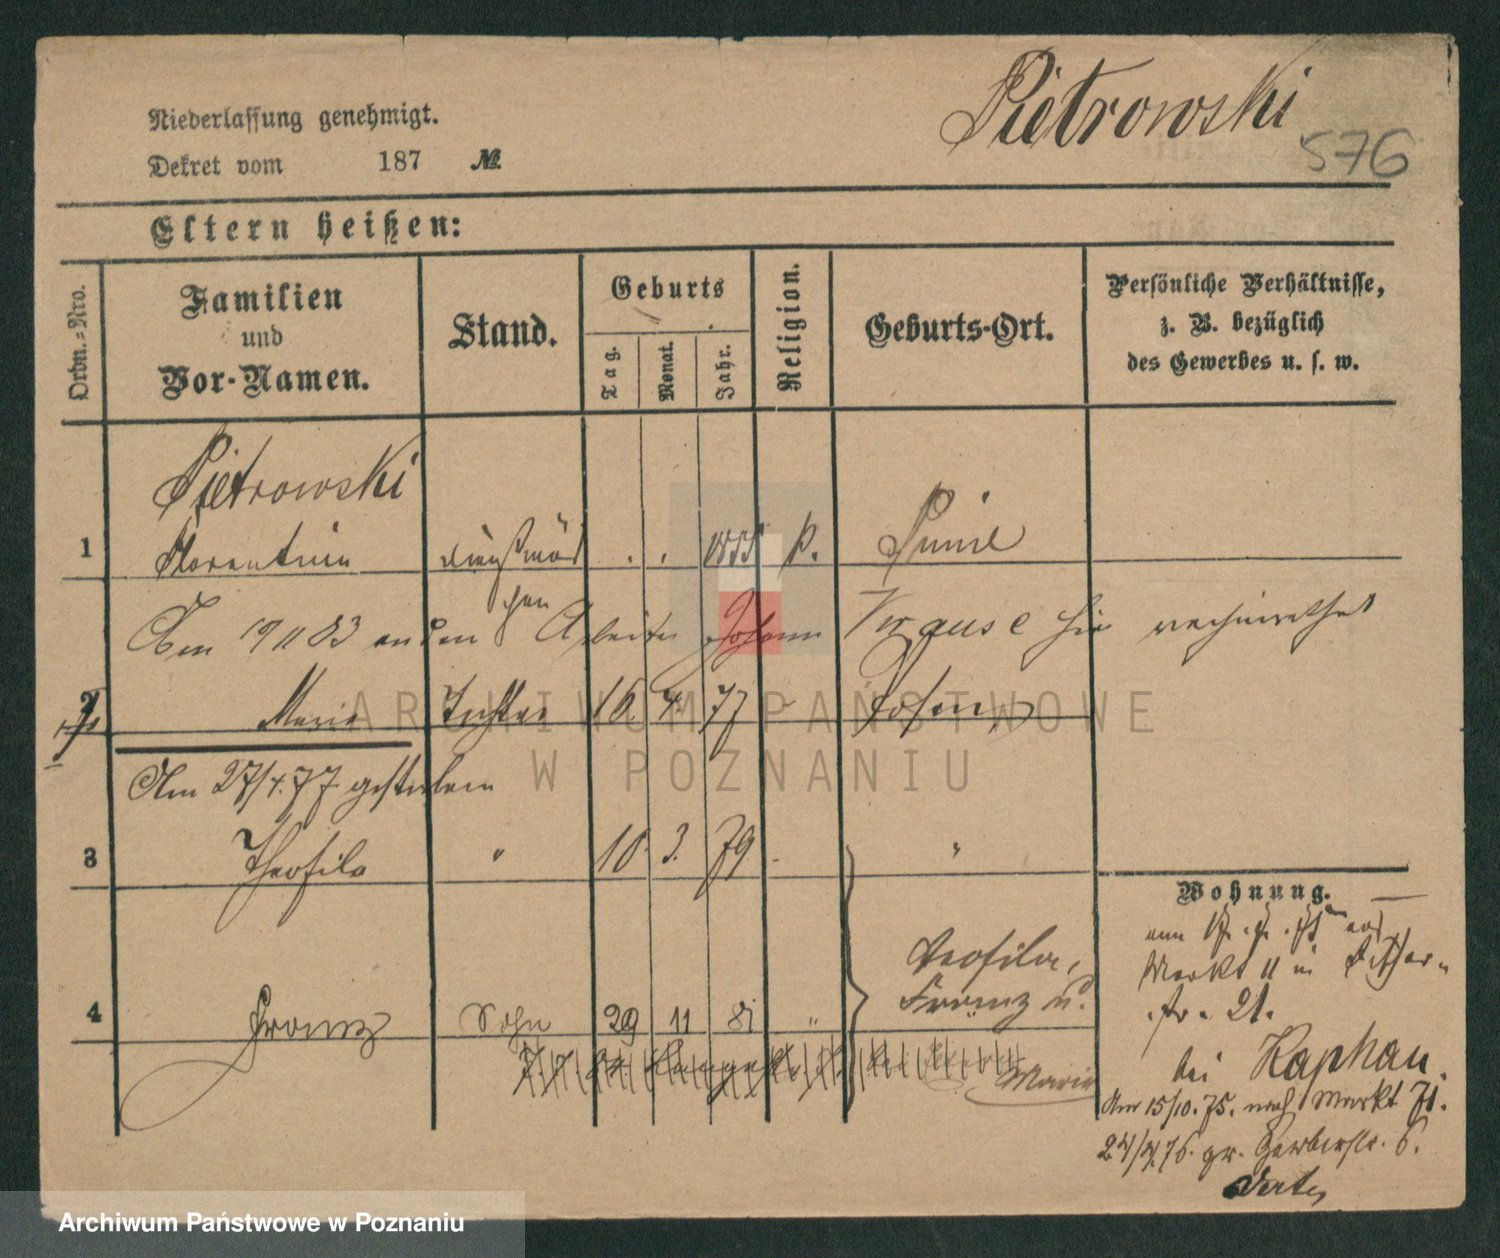 Pietrowski
576
Niederlassung genehmigt.
Dekret vom 187 №
Eltern heißen:
Ordn.-Nro.
Familien
und
Vor-Namen.
Stand.
Geburts
Tag.
Monat.
Jahr.
Religion.
Geburts-Ort.
Persönliche Verhältnisse,
z. B. bezüglich
des Gewerbes u. s. w.
Pietrowski
1 Florentine 1855 k.
Am 19 11 83 an den Arbeiter Johann Krause hier verheirathet
2 Maria Tochter 16. 4. 77 Posen
Am 27/4.77 gestorben
3 Theofila " 10. 3. 79 "
Wohnung.
Teofila,
Franz u.
Maria
4 Franz Sohn 29 11 81 "
Markt 11 in
str. 21.
bei Kaphan.
Am 15/10.75. nach Markt 71.
24/4.76. gr. Gerberstr. 6.
ARCHIWUM PAŃSTWOWE
W POZNANIU
Archiwum Państwowe w Poznaniu